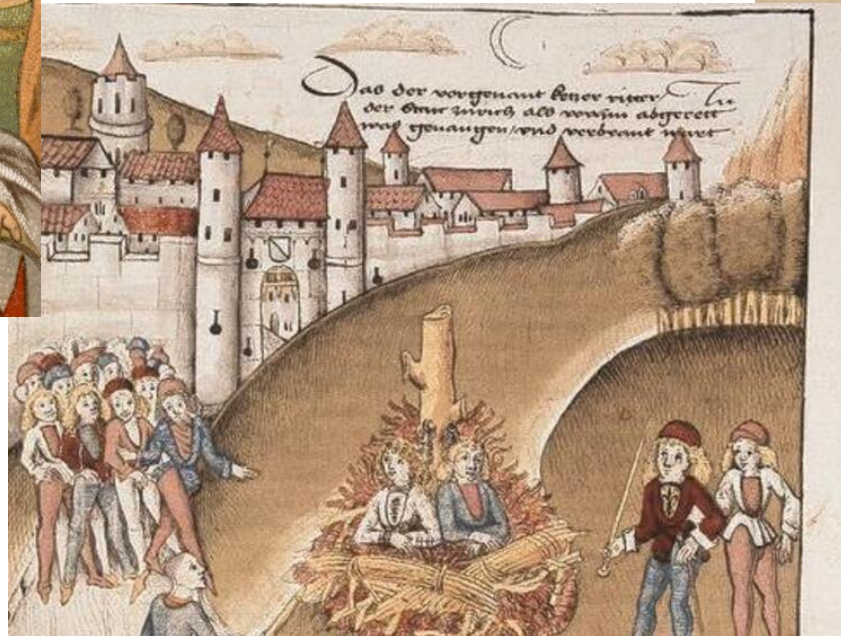 Das der vorgenant ketzer ritter / In
der Statt zürich als vorstat abgerett
was geuangen / vnd verbrant wart